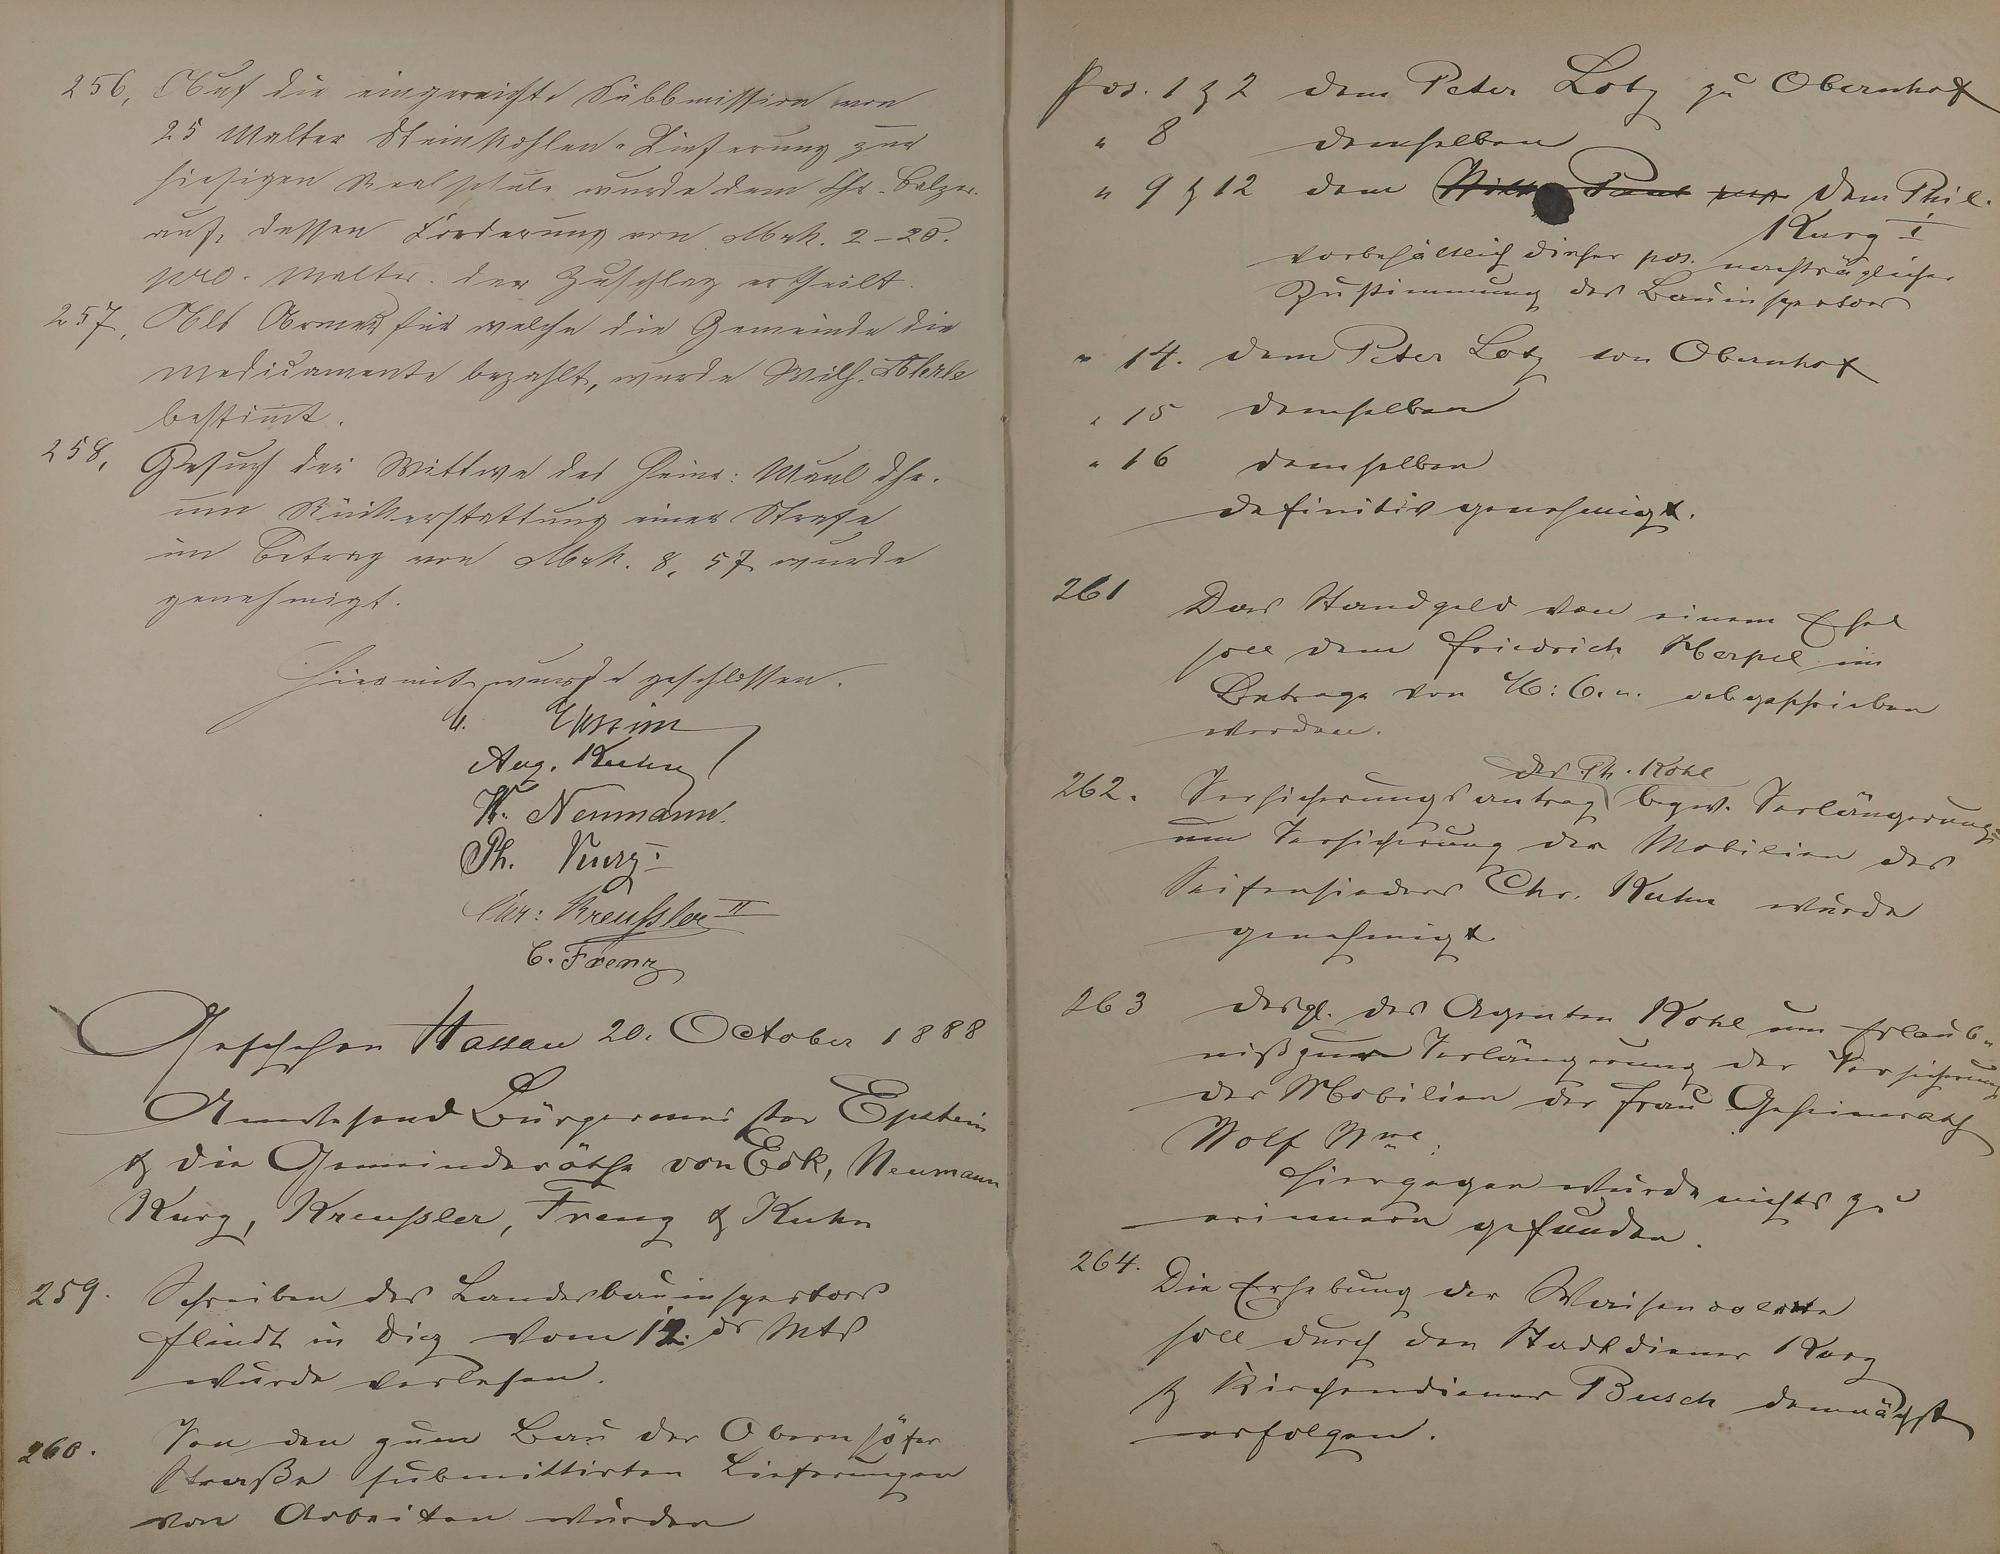 256, Auf die eingereichte Subbmission von
25 Malter Steinkohlen-Lieferung zur
hiesigen Realschule wurde dem Chr. Balzer.
auf dessen Forderung von Mrk. 2-20.
pro. Malter. der Zuschlag ertheilt.
257, Als Armer für welche die Gemeinde die
Medicamente bezahlt, wurde Wilh.
bestimt.
258, Gesuch der Wittwe des Heinr: Maul dhr.
um Rückerstattung einer Strafe
im Betrag von Mrk. 8, 57 wurde
genehmigt.
Hiermit wurde geschlossen.
Epstein
Aug. Kuhn
W. Neumann.
Ph. Kurz
Chr: Kreußler II
C. Frenz
Geschehen Nassau 20. October 1888
Anwesend Bürgermeister Epstein
& die Gemeinderäthe von Eck, Neumann
Kurz, Kreußler, Frenz & Kuhn
259. Schreiben des Landesbauinspectors
Flindt in Diez vom 12. ds Mts
wurde verlesen.
260. Von den zum Bau der Obernhöfer
Straße submittirten Lieferungen
von Arbeiten wurden
Pos. 1 & 2 dem Peter Lotz zu Obernhof
" 8 demselben
" 9 & 12 dem dem Phil.
Kurz I
vorbehältlich dieser pos. nachträglicher
Zustimmung des Bauinspectors
" 14. dem Peter Lotz von Obernhof
" 15 demselben
" 16 demselben
definitiv genehmigt.
261 Das Standgeld von einem Esel
soll dem Friedrich Herpel im
Betrage von M: 6.u. abgeschrieben
werden.
des Ph. Kohl
262. Versicherungsantrag bezw. Verlängerung
um Versicherung der Mobilien des
Seifensieders Chr. Kuhn wurde
genehmigt.
263 desgl. des Agenten Kohl um Erlaub-
niß zur Verlängerung der Versicherung
der Mobilien der Frau Geheimrath
Wolf Wwe:
Hiergegen wurde nichts zu
erinnern gefunden.
264. Die Erhebung der Waisencollecte
soll durch den Stadtdiener Kurz
& Kirchendiener Busch demnächst
erfolgen.